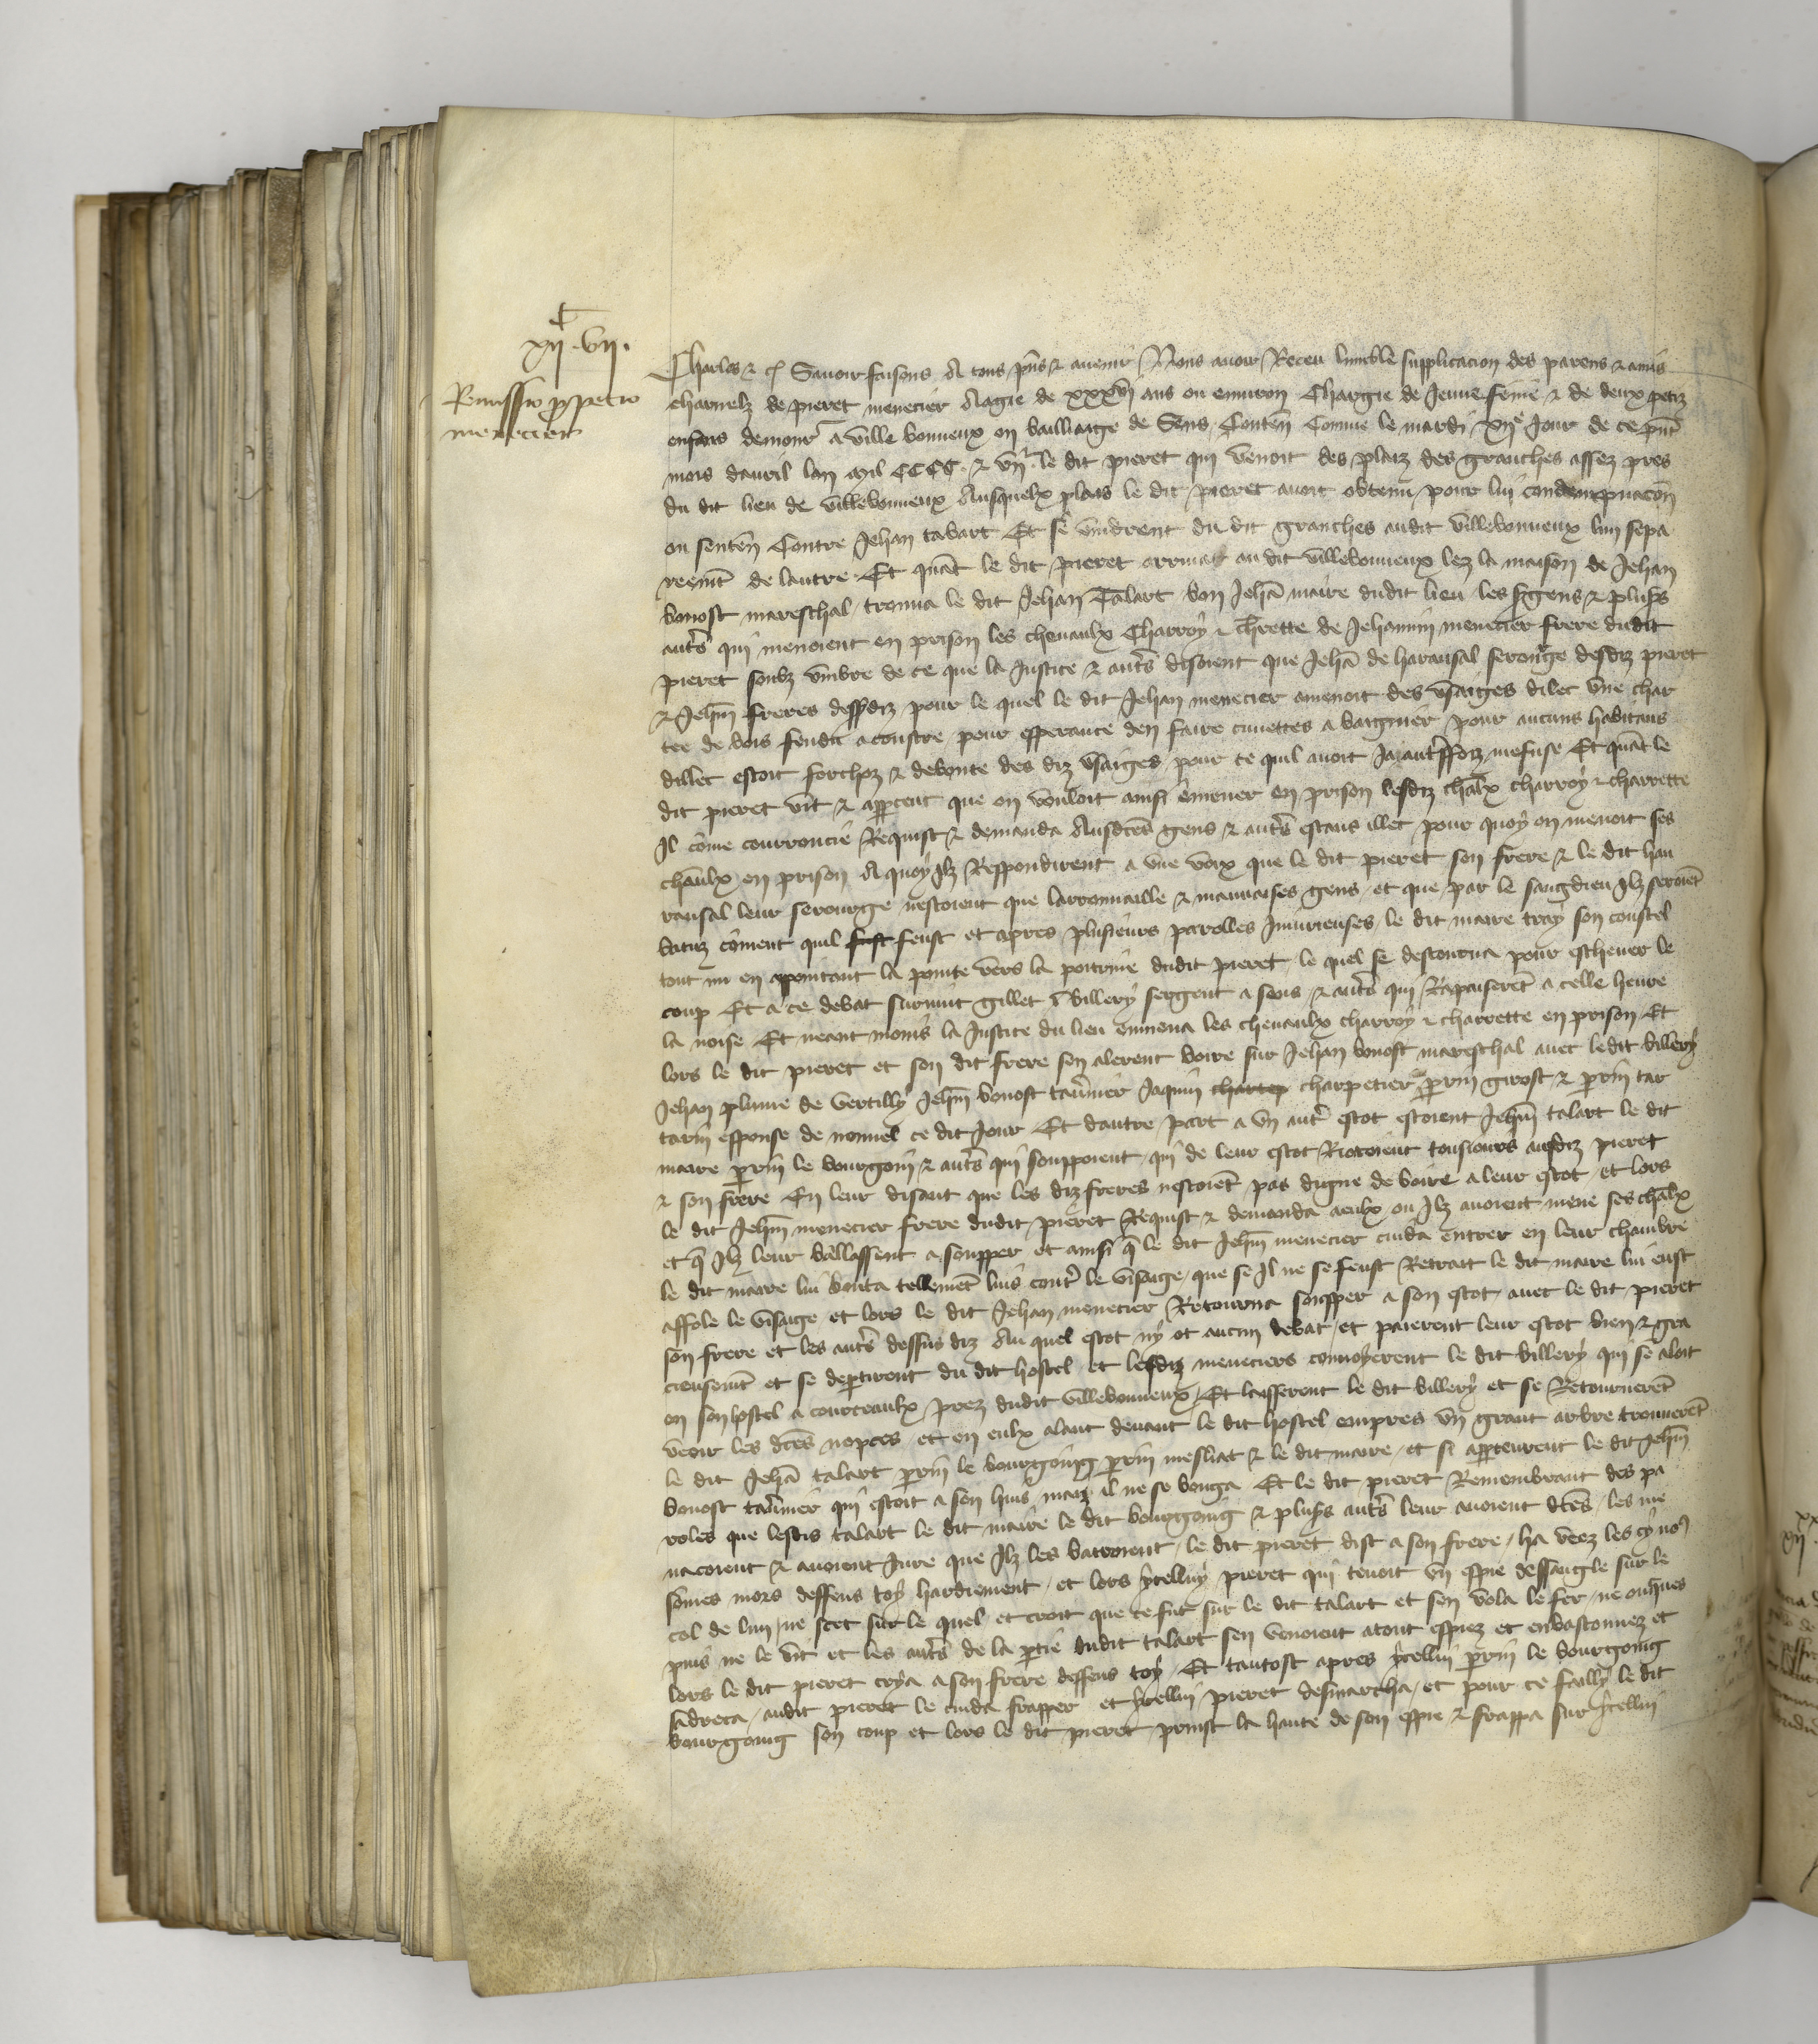 xii vii.
Remissio pro petro
menecier
Charles &c. Savoir faisons A tous pns & avenir Nous avoir Receu lumble supplicacion des parens & amis
charnelz de pieret menecier Aagie de xxxvi ans ou environ Chargie de Jeune feme & de deux petiz
enfans demour a ville bonneux ou bailliaige de Sens Conten Comme le mardi xije Jour de ce pnt
mois davril lan mil CCCC & vn le dit pieret qui venoit des plaiz des granches assez pres
du dit lieu de villebonneux Ausquelx plais le dit pieret avoit obtenu pour lui condempnacon
ou senten Contre Jehan tabart Et se vindrent du dit granches audit villebonneux lun sepa
reemt de lautre Et quat le dit pieret arriva au dit villebonneux lez la maison de Jehan
bonost mareschal trouva le dit Jehan Talart bon Jeha maire dudit lieu les sgens & plus
autrs qui menoient en prison les chevaulx Charroy & chrette de Jehannin menecier frere dudit
pieret soubz umbre de ce que la Justice & autrs disoient que Jeha de haransal serourge desdiz pieret
& Jehan freres dessdiz pour le quel le dit Jehan menecier amenoit des usaiges dilec une char
tee de bois fendu a coustre pour esperance den faire cuvettes a baignier pour aucuns habitans
dillec estoit forchoz & deboute des diz usaiges pour ce quil avoit Ja autrffoiz mefuse Et quat le
dit pieret vit & appcent que on vouloit ainsi emener en prison lesdiz chalx charroy & charrette
Il come courroucie Requist & demanda Ausdces gens & autrs estans illec pour quoy on menoit ses
chaulx en prison A quoy Ilz Respondirent a une voix que le dit pieret son frere & le dit hau
ransal leur serourge nestoient que larronnaille & mauvaises gens et que par le sangdieu Ilz seroiet
batuz coment quil fust feust et apres plusieurs parolles Iniurieuses le dit maire tray son coustel
tout nu en apointant la pointe vers la poitrine dudit pieret le quel se destourna pour eschever le
coup Et a ce debat survint gillet villery sergent a sens & autrs qui Rapaiseret a celle heure
la noise Et neant moins la Justice du lieu enmena les chevaulx charroy & charrette en prison Et
lors le dit pieret et son dit frere sen alerent boire sur Jehan bonost mareschal avec ledit billery
Jehan plume de vertilly Jehan bonost tavrnier Jaquin charpetier prin girost & prin tar
tarin espouse de nouvel ce dit Jour Et dautre part a un autr escot estoient Jehan talart le dit
maire prin le bourgoin & autrs qui souppoient qui de leur escot Riotoient tousiours ausdiz pieret
& son frere En leur disant que les diz freres nestoiet pas digne de boire a leur escot et lors
le dit Jehan menecier frere dudit pieret Requist & demanda aeulx ou Ilz avoient mene ses chalx
et q Ilz leur baillassent a soupper et ainsi q le dit Jehan menecier cuida entrer en leur chambre
le dit maire lui bouta tellemet luis contr le visaige que se Il ne se feust Retrait le dit maire lui eust
affole le visaige et lors le dit Jehan menecier Retourna soupper a son escot avec le dit pieret
son frere et les autrs dessus diz Au quel escot ny ot aucun debat et paierent leur escot bien & gra
cieusemt et se deptirent du dit hostel et lesdiz meneciers convoyerent le dit billery qui se aloit
en son hostel a courceaulx prez dudit villebonneux Et laisserent le dit billery et se Retourneret
veoir les dces nopces et en eulx alant devant le dit hostel empres un grant arbre trouveret
le dit Jeha talart prin le bourgoing prin mesliat & le dit maire et si appceurent le dit Jehan
bonost tavrnier qui estoit a son huis maiz il ne se bouga Et le dit pieret Remembrant des pa
roles que lesdis talart le dit maire le dit bourgoing & plus autrs leur avoient dces les me
nacoient & avoient Jure que Ilz les batroient le dit pieret dist a son frere ha veez les cy nos
somes mors deffens toy hardiement et lors ycelluy pieret qui tenoit un espie dessangle sur le
col de lun ne scet sur le quel et croit que ce fut sur le dit talart et sen vola le fer ne onques
puis ne le vit et les autrs de la ptie dudit talart sen venoient atout espiez et enbastonnez et
lors le dit pieret crya a son frere deffens toy Et tantost apres ycellui prin le bourgoing
sadreca audit pieret le cuida frapper et ycellui pieret desmarcha et pour ce failly le dit
bourgoing son coup et lors le dit pieret prinst la hante de son espie & frappa sur ycellui